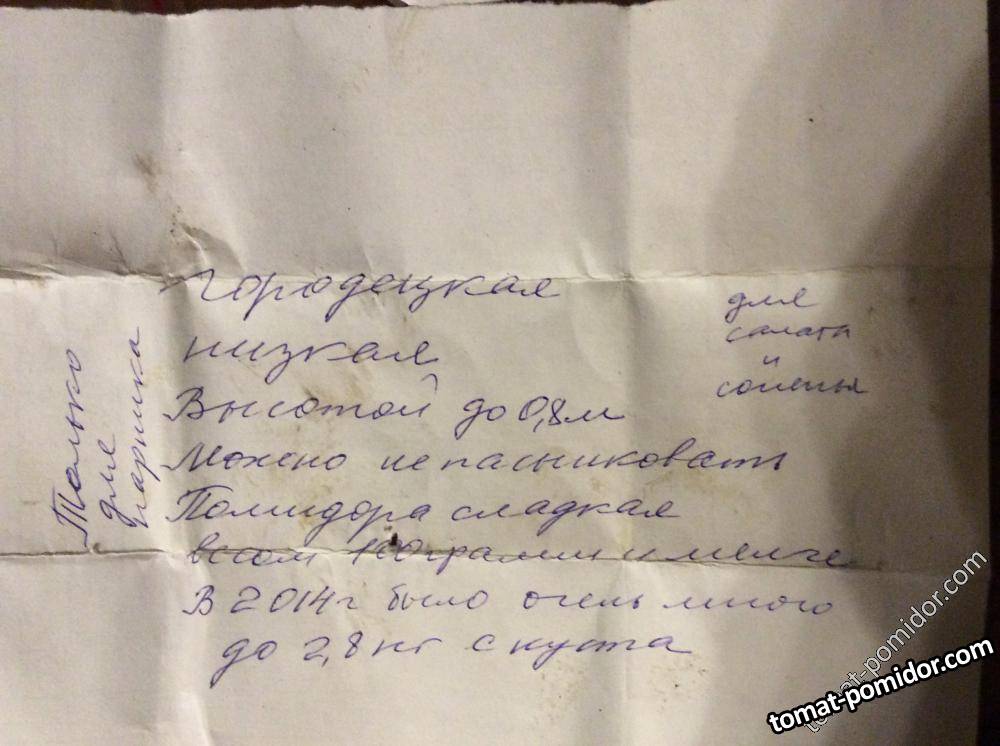 Городецкая
низкая
Высотой до 0,8м
Можно не пасынковать
Помидора сладкая
весом 100 грамм и мельче
В 2014г было очень много
до 2,8 кг с куста
Только
для
парника
для
салата
и
соленья
tomat-pomidor.com
tomat-pomidor.com